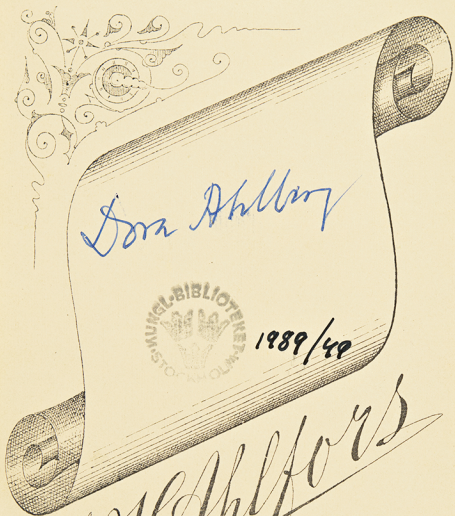 Dora Ahlberg
KUNGL·BIBLIOTEKET·
STOCKHOLM
1989/49
Ahlfors